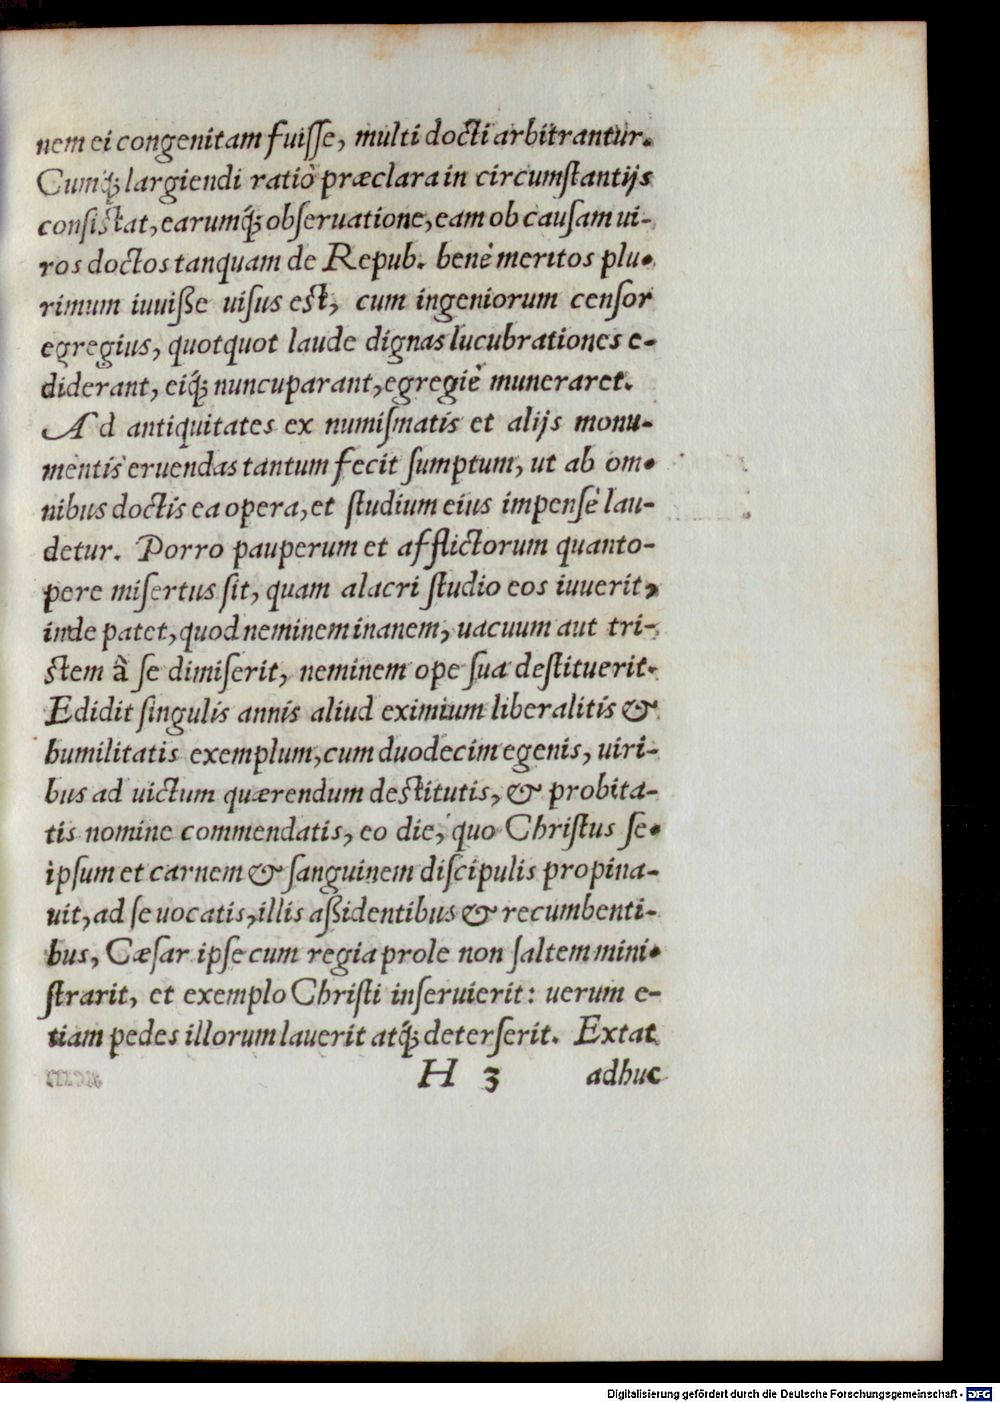 nem ei congenitam fuiſſe, multi docti arbitrantur.
Cumq́ꝫ largiendi ratio præclara in circumſtantijs
conſiſtat, earumq́ꝫ obſeruatione, eam ob cauſam ui-
ros doctos tanquam de Repub. benè meritos plu-
rimum iuuiſſe uiſus eſt, cum ingeniorum cenſor
egregius, quotquot laude dignas lucubrationes e-
diderant, eiq́ꝫ nuncuparant, egregiè muneraret.
Ad antiquitates ex numiſmatis et alijs monu-
mentis eruendas tantum fecit ſumptum, ut ab om-
nibus doctis ea opera, et ſtudium eius impensè lau-
detur. Porro pauperum et afflictorum quanto-
pere miſertus ſit, quam alacri ſtudio eos iuuerit,
inde patet, quod neminem inanem, uacuum aut tri-
ſtem à ſe dimiſerit, neminem ope ſua deſtituerit.
Edidit ſingulis annis aliud eximium liberalitis &
humilitatis exemplum, cum duodecim egenis, uiri-
bus ad uictum quærendum deſtitutis, & probita-
tis nomine commendatis, eo die, quo Chriſtus ſe-
ipſum et carnem & ſanguinem diſcipulis propina-
uit, ad ſe uocatis, illis aſſidentibus & recumbenti-
bus, Cæſar ipſe cum regia prole non ſaltem mini-
ſtrarit, et exemplo Chriſti inſeruierit: uerum e-
tiam pedes illorum lauerit atq́ꝫ deterſerit. Extat
H 3 adhuc
Digitalisierung gefördert durch die Deutsche Forschungsgemeinschaft - DFG